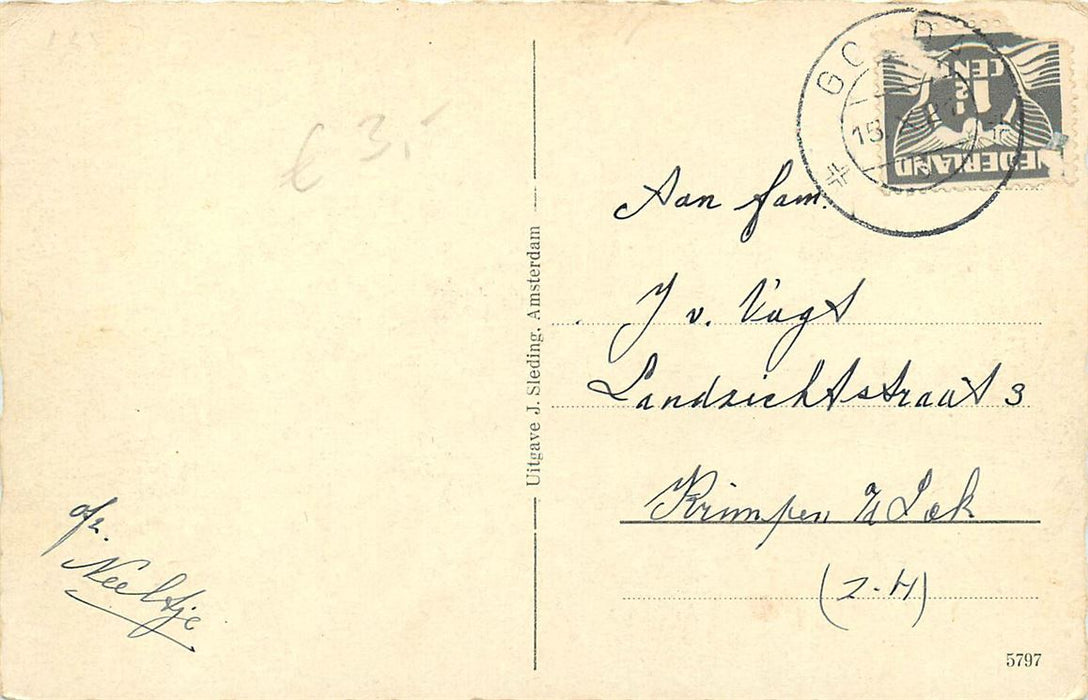 € 3,-
Uitgave J. Sleding, Amsterdam
NEDERLAND
1
CENT
Aan fam.
J v. Vugt
Landzichtstraat 3
Krimpen a/d Lek
(Z-H)
afz.
Neeltje
5797